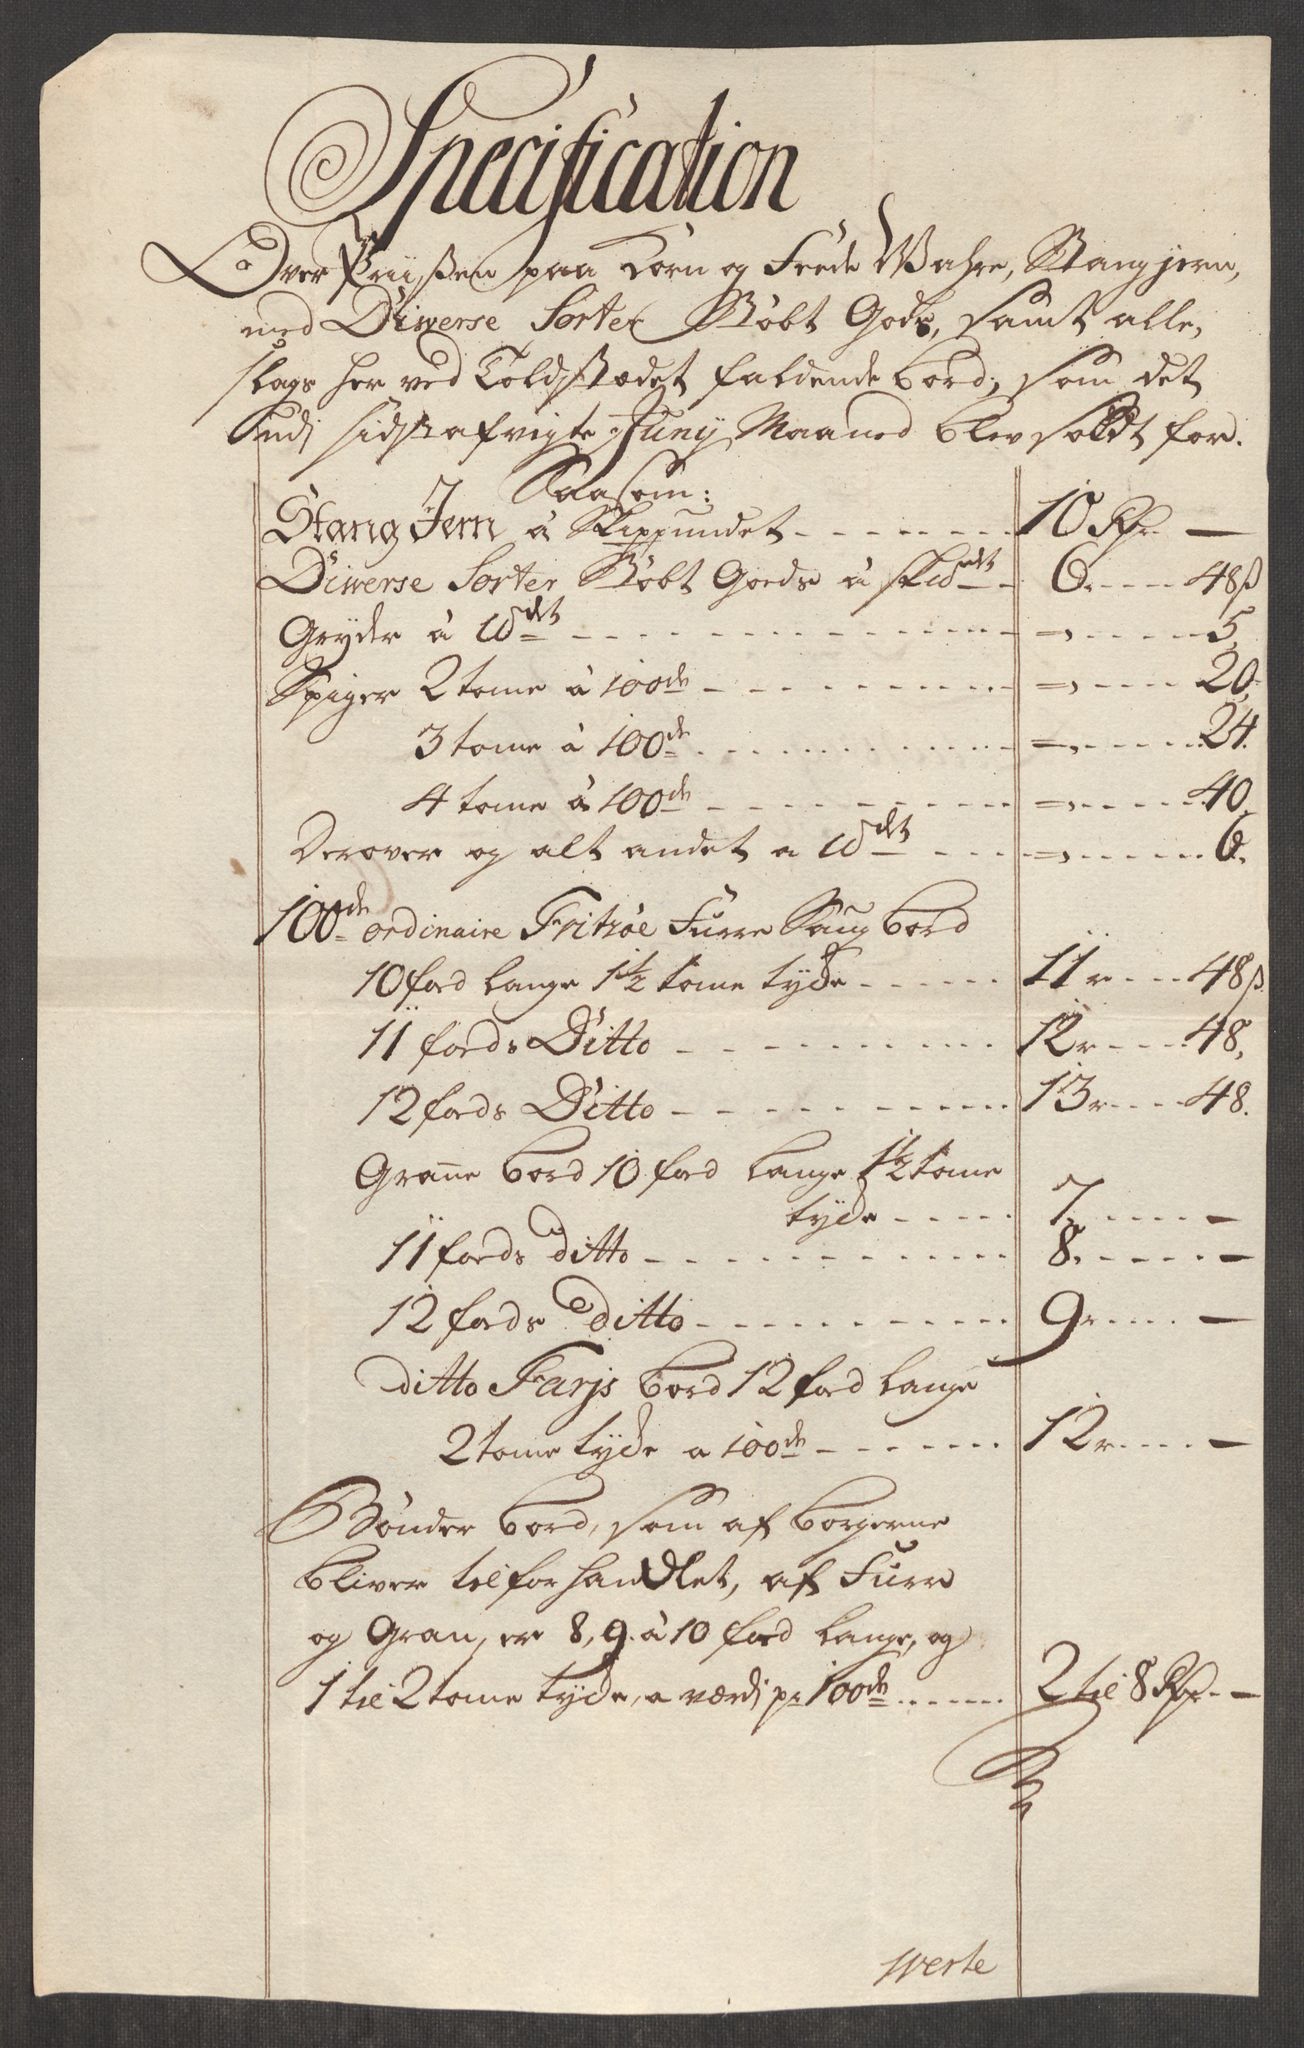 Specification
Over Priisen paa Korn og Feede Wahre, Stangjern,
med Diverse Sorter Støbt Gods, samt alle,
slags her ved Toldstædet faldende bord, som det
udj sidstafvigte Juny Maaned blev soldt for.
Saasom:
Stang Jern â Skippundet - - - - - - 10 Rdr. —
Diverse Sorter Støbt Goeds â skldt - - 6. - - - 48 ß
Gryder â Wdet - - - - - - - - - = - - - 5,
Spiger 2 tome â 100de - - - - - - = - - - 20,
3 tome â 100de - - - - - - = - - - 24.
4 tome â 100de - - - - - - = - - - 40.
Derover og alt andet a Wdet - - - = - - - 6.
100de ordinaire Fritzøe Furre Saug bord
10 foed lange 1½ tome tyke - - - - - 11 r - - - 48 ß.
11 foeds Ditto - - - - - - - - 12 r - - - 48,
12 foeds Ditto - - - - - - - - 13 r - - - 48.
Grane bord 10 foed lange 1½ tome
tyke - - - - 7. - - - —
11 foeds ditto - - - - - - - - 8. - - - —
12 foeds ditto - - - - - - - - 9 r - - - —
ditto Farjs bord 12 foed lange
2 tome tyke a 100de - - - - - - 12 r - - - —
Bønder bord, som af borgerne
bliver tilforhandlet, af Furre
og Gran, er 8, 9. â 10 foed lange, og
1 til 2 tome tyke, a værdj pr 100de - - - - 2 til 8 Rdr. —
verte